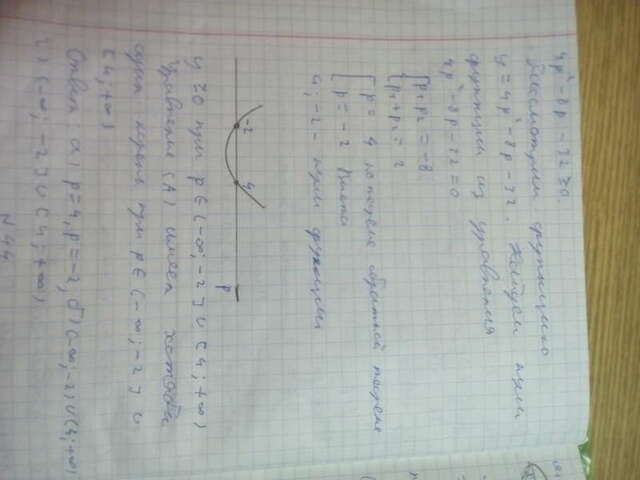 4p² - 8p - 32 ≥ 0.
Рассмотрим функцию
y = 4p² - 8p - 32. Найдём нули
функции из уравнения
4p² - 8p - 32 = 0
p₁p₂ = -8
p₁ + p₂ = 2
p = 4 по теореме обратной теореме
p = -2 Виета
4; -2 - нули функции
-2 4 p
y ≥ 0 при p ∈ (-∞; -2] ∪ [4; +∞)
Уравнение (A) имеет хотя бы
один корень при p ∈ (-∞; -2] ∪
[4; +∞)
Ответ: а) p = 4, p = -2, б) (-∞; -2) ∪ (4; +∞)
в) (-∞; -2] ∪ [4; +∞)
N 44